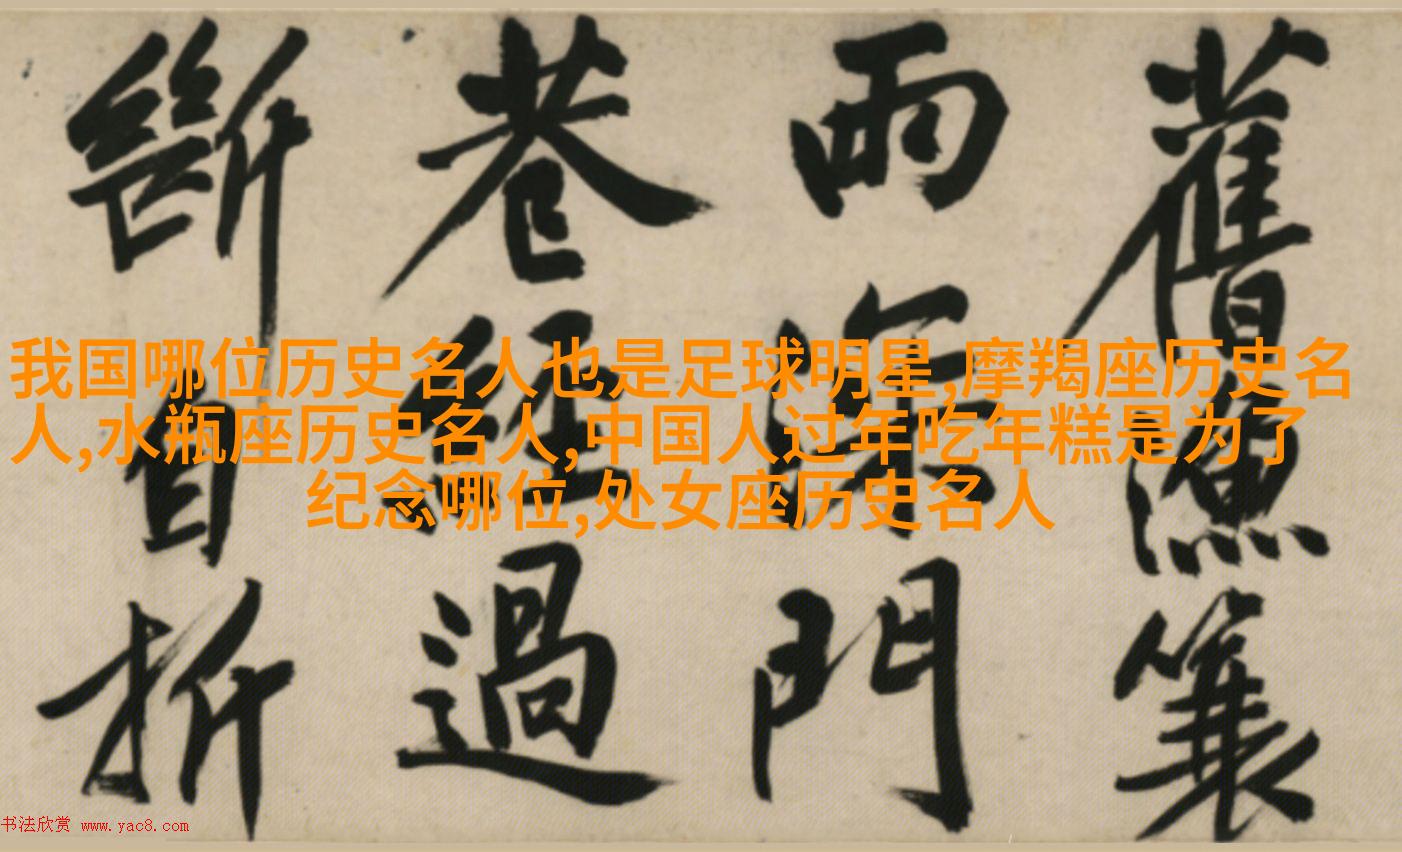 舊漁蓑
雨深門
巷經過
斷自折
我国哪位历史名人也是足球明星,摩羯座历史名
人,水瓶座历史名人,中国人过年吃年糕是为了
纪念哪位,处女座历史名人
书法欣赏 www.yac8.com